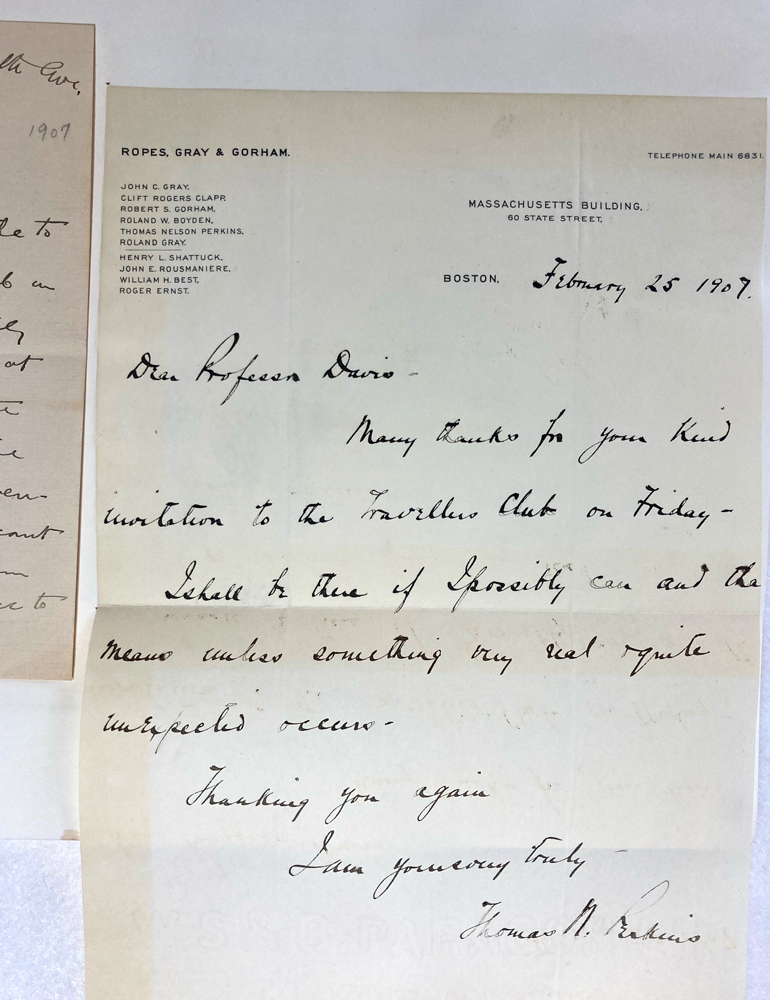 th Ave,
1907
to
in
at
ROPES, GRAY & GORHAM.
TELEPHONE MAIN 6831.
JOHN C. GRAY,
CLIFT ROGERS CLAPP,
ROBERT S. GORHAM,
ROLAND W. BOYDEN,
THOMAS NELSON PERKINS,
ROLAND GRAY.
HENRY L. SHATTUCK,
JOHN E. ROUSMANIERE,
WILLIAM H. BEST,
ROGER ERNST.
MASSACHUSETTS BUILDING,
60 STATE STREET,
BOSTON, February 25 1907.
Dear Professor Davis -
Many thanks for your kind
invitation to the Travellers Club on Friday -
I shall be there if I possibly can and tha
means unless something very real & quite
unexpected occurs -
Thanking you again
I am yours very truly -
Thomas N. Perkins